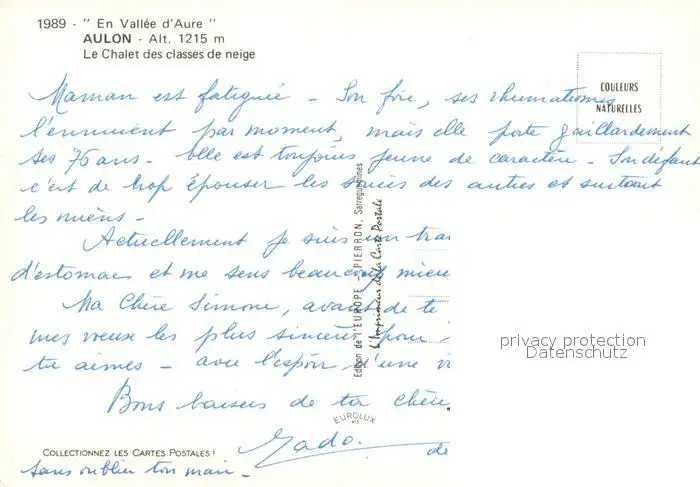 1989 - " En Vallée d'Aure "
AULON - Alt. 1215 m
Le Chalet des classes de neige
COULEURS
NATURELLES
Maman est fatiguée - Son foie, ses rhumatismes
l'ennuient par moment, mais elle porte gaillardement
ses 76 ans - Elle est toujours jeune de caractère - Son défaut
c'est de trop épouser les soucis des autres et surtout
les miens -
Actuellement je suis un trai
d'estomac et me sens beaucoup mieu
Ma Chère Simone, avant de te
mes vœux les plus sincères pour
tu aimes - avec l'espoir d'une vi
Bons baisers de ta chère
Zado.
de
sans oublier ton mari -
Edition de l'EUROPE - PIERRON, Sarreguemines
L'Imprimeur de la Carte Postale
EUROLUX
COLLECTIONNEZ LES CARTES POSTALES !
privacy protection
Datenschutz